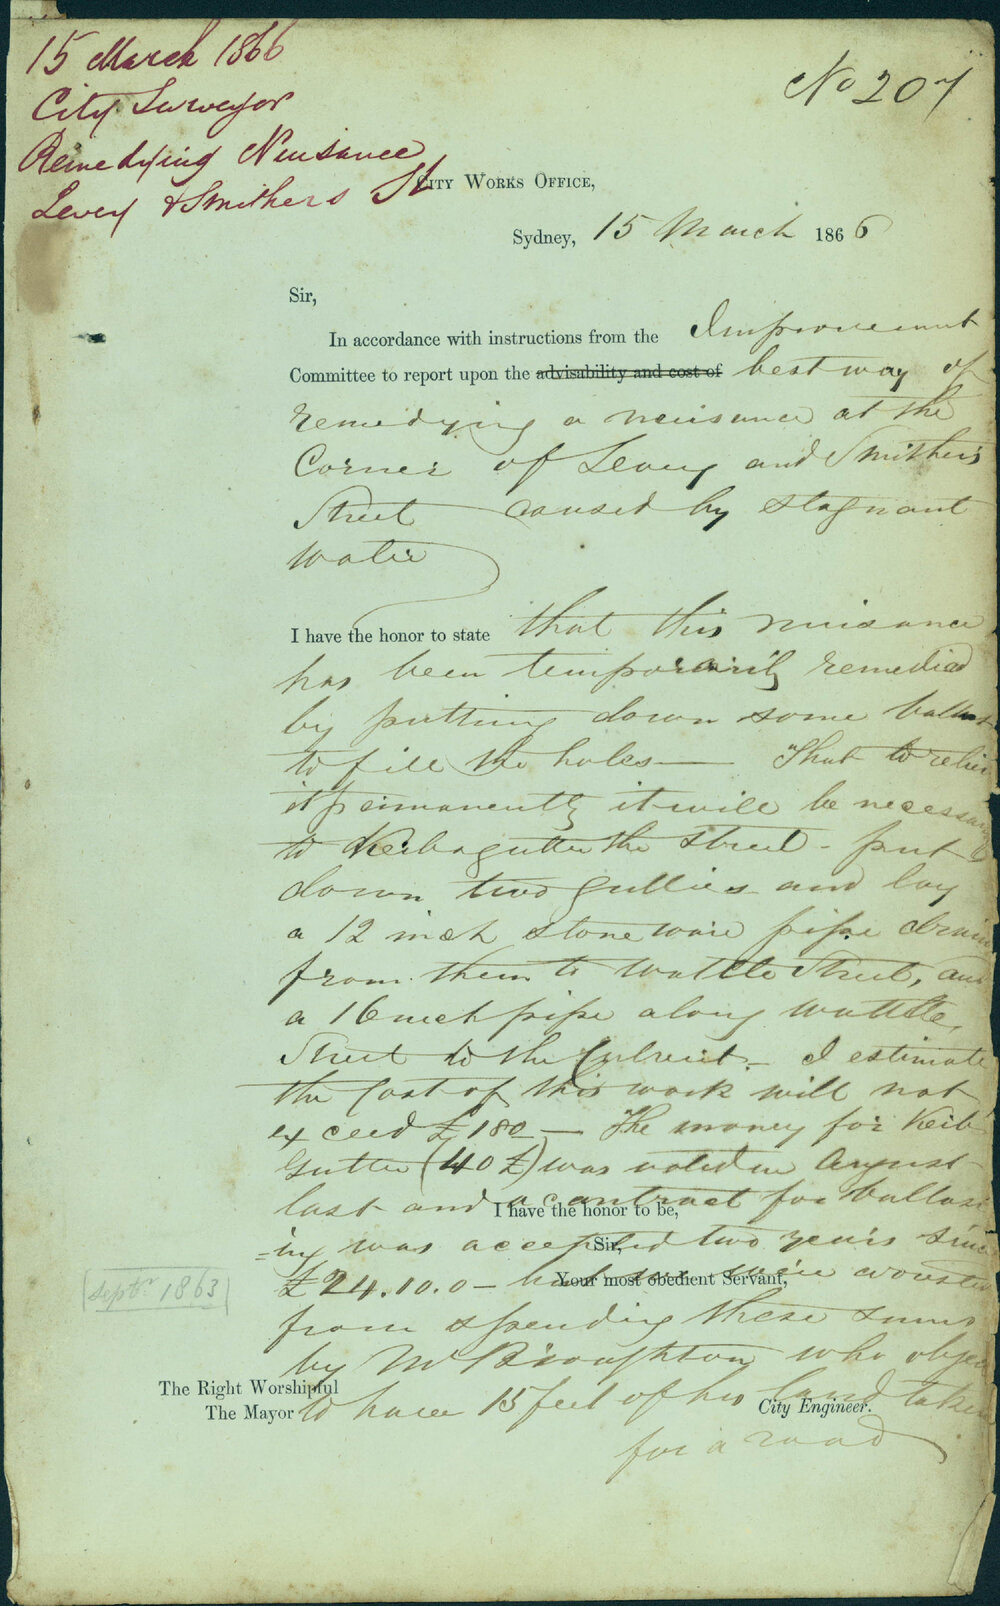 15 March 1866
No 207
City Surveyor
Remedying Nuisance
Levey & Smithers St
City Works Office,
Sydney, 15 March 1866
Sir,
In accordance with instructions from the Improvement
Committee to report upon the advisability and cost of best way of
remedying a nuisance at the
Corner of Levey and Smithers
Street caused by stagnant
water
I have the honor to state that this nuisance
has been temporarily remedied
by putting down some ballast
to fill the holes — That to reliev
it permanently it will be necessary
to Kerb & gutter the street - put
down two gullies and lay
a 12 inch stone ware pipe drain
from them to Wattle Street, and
a 16 inch pipe along Wattle
Street to the Culvert - I estimate
the Cost of this work will not
exceed £180 — The money for Kerb
Gutter (40£) was voted in August
last and a contract for ballast
I have the honor to be,
-ing was accepted two years since
Sir,
£24.10.0 - but we were
Your most obedient Servant,
[Septr 1863]
from spending these sums
by Mr Broughton who object
The Right Worshipful
The Mayor
to have 15 feet of his land taken
City Engineer.
for a road